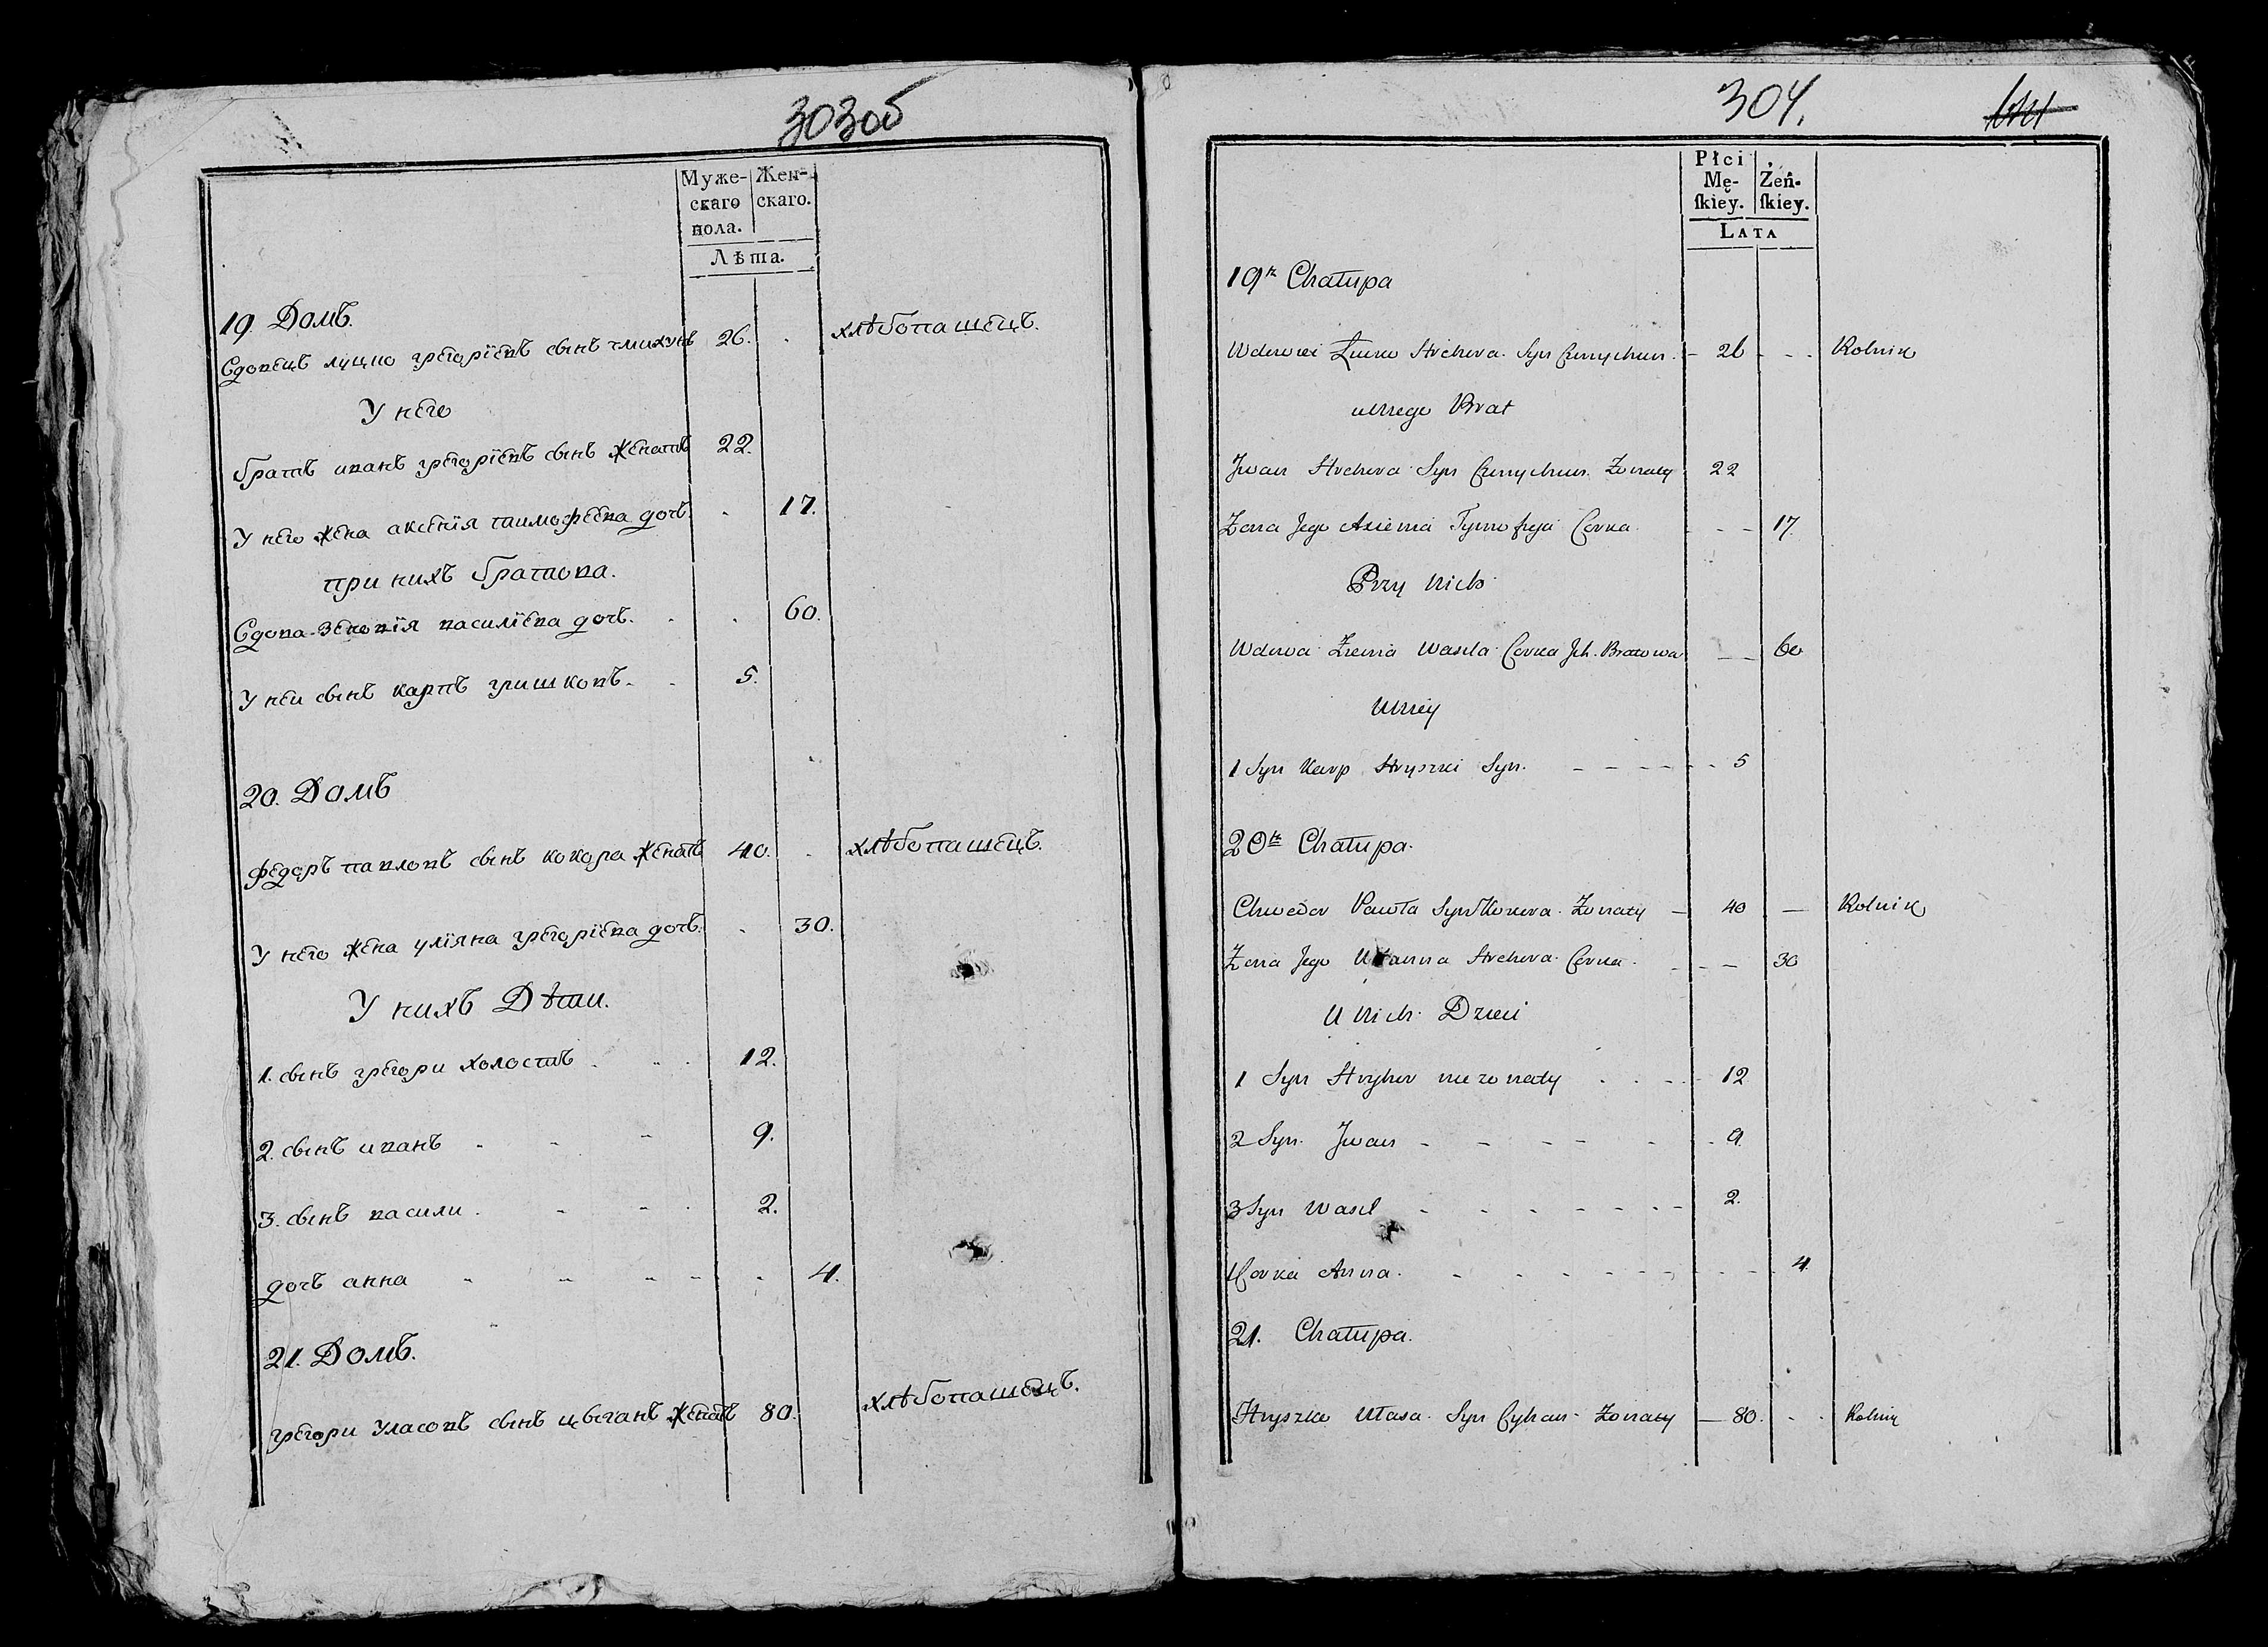 303об
Муже- Жен-
скаго скаго.
пола.
Лѣта.
19 Домъ.
Вдовецъ луцко грегоріевъ сынъ 26. . хлѣбопашецъ.
У него
братъ иванъ грегоріевъ сынъ женатъ 22.
У него жена аксенія тимофеева дочь. . 17.
при нихъ братова.
Вдова зеновія василіева дочь. . . 60.
У неи сынъ карпъ гришковъ. . 5.
20. Домъ
федоръ павловъ сынъ кокора женатъ 40. . хлѣбопашецъ.
У него жена уліяна грегоріева дочь. . 30.
У нихъ Дѣти.
1. сынъ грегори холостъ . . . 12.
2. сынъ иванъ . - - 9.
3. сынъ васили . - - . 2.
дочь анна - - - - . 4.
21. Домъ.
грегори уласовъ сынъ цыганъ женатъ 80. хлѣбопашецъ.
304.
Płci
Mę- Żeń-
ſkiey. ſkiey.
LATA
19ta Chałupa
Wdowiec Łucko Hrehora Syn - 26 - - . Rolnik
u Niego Brat
Jwan Hrehora Syn Żonaty 22
Żona Jego Axienia Tymofieja Corka - - - 17
Przy Nich
Wdowa Zienia Wasila Corka Jch Bratowa - - 60
U Niey
1 Syn Karp Hryszki Syn. - - - - - - 5
20ta Chałupa.
Chwedor Pawła Syn Kokora Żonaty - 40 - Rolnik
Żona Jego Ulanna Hrehora Corka . - - - 30
U Nich Dzieci
1 Syn Hryhor nie zonaty . . - - - 12
2 Syn Jwan - - - - - - 9
3 Syn Wasil - - - - - - - 2.
1 Corka Anna. - - - - - - - - - 4.
21. Chałupa.
Hryszko Ułasa Syn Cyhan Żonaty - 80. - . Rolnik